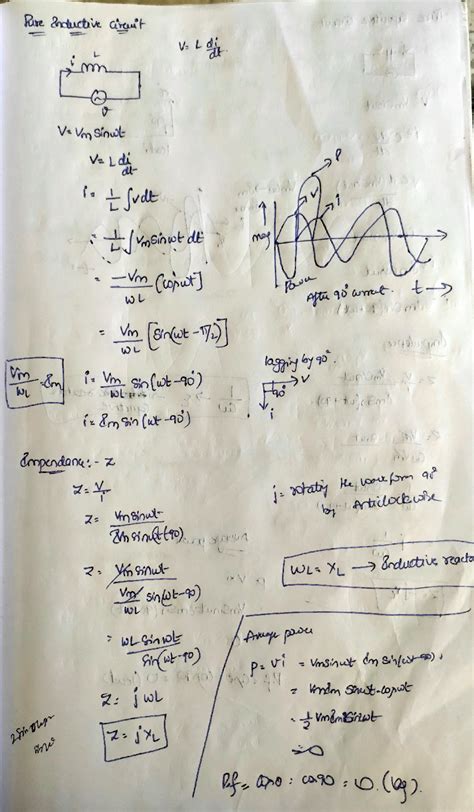 Pure Inductive Circuit
V = L di/dt
i L
v
V = Vm sinωt
V = L di/dt
i = 1/L ∫vdt
i = 1/L ∫Vm sinωt dt
= -Vm/ωL [cosωt]
= Vm/ωL [sin(ωt - π/2)]
Vm/ωL = Im
i = Vm/ωL sin(ωt-90°)
i = Im sin(ωt-90°)
P
V
i
mag
Power
After 90° current. t →
lagging by 90°
90° V
i
Impendane:- Z
Z = V/i
Z = Vm sinωt / Im sin(ωt-90)
Z = Vm sinωt / Vm/ωL sin(ωt-90)
= ωL sinωt / sin(ωt-90)
Z = jωL
Z = jXL
j = rotating the wave form 90°
by Anticlockwise
ωL = XL → Inductive reacta
Average power
P = Vi = Vm sinωt Im sin(ωt-90)
= VmIm sinωt-cosωt
= 1/2 VmIm sinωt
= 0
Pf = cosθ = cos90 = 0. (lag).